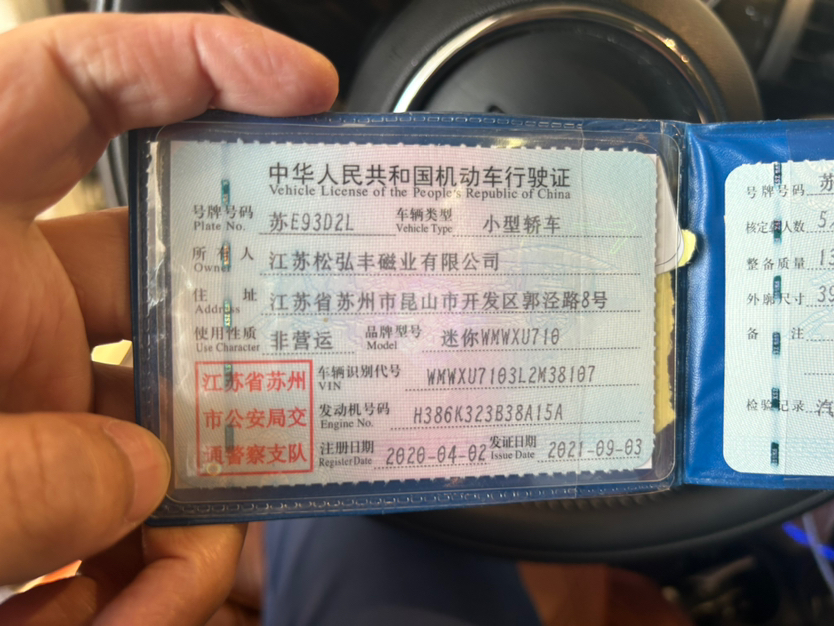 中华人民共和国机动车行驶证
Vehicle License of the People's Republic of China
号牌号码 苏E93D2L 车辆类型 小型轿车
Plate No. Vehicle Type
所有人 江苏松弘丰磁业有限公司
Owner
住址 江苏省苏州市昆山市开发区郭泾路8号
Address
使用性质 非营运 品牌型号 迷你WMWXU710
Use Character Model
江苏省苏州
市公安局交
通警察支队
车辆识别代号 WMWXU7103L2M38107
VIN
发动机号码 H386K323B38A15A
Engine No.
注册日期 2020-04-02 发证日期 2021-09-03
Register Date Issue Date
号牌号码 苏
核定载人数 5
整备质量 13
外廓尺寸 39
备注
检验记录 汽